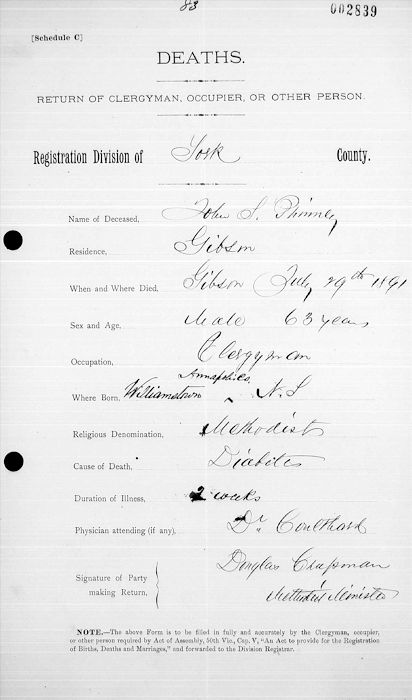 83
002839
[Schedule C]
DEATHS.
RETURN OF CLERGYMAN, OCCUPIER, OR OTHER PERSON.
Registration Division of York County.
Name of Deceased, John S. Phinney
Residence, Gibson
When and Where Died, Gibson July 29th 1891
Sex and Age, Male 63 years
Occupation, Clergyman
Annapolis
Where Born, Williamstown ^ N.S
Religious Denomination, Methodist
Cause of Death, Diabites
Duration of Illness, 2 weeks
Physician attending (if any), Dr Coulthard
Douglas Chapman
Signature of Party
making Return, Methodist Minister
NOTE.—The above Form is to be filled in fully and accurately by the Clergyman, occupier,
or other person required by Act of Assembly, 50th Vic., Cap. V, "An Act to provide for the Registration
of Births, Deaths and Marriages," and forwarded to the Division Registrar.